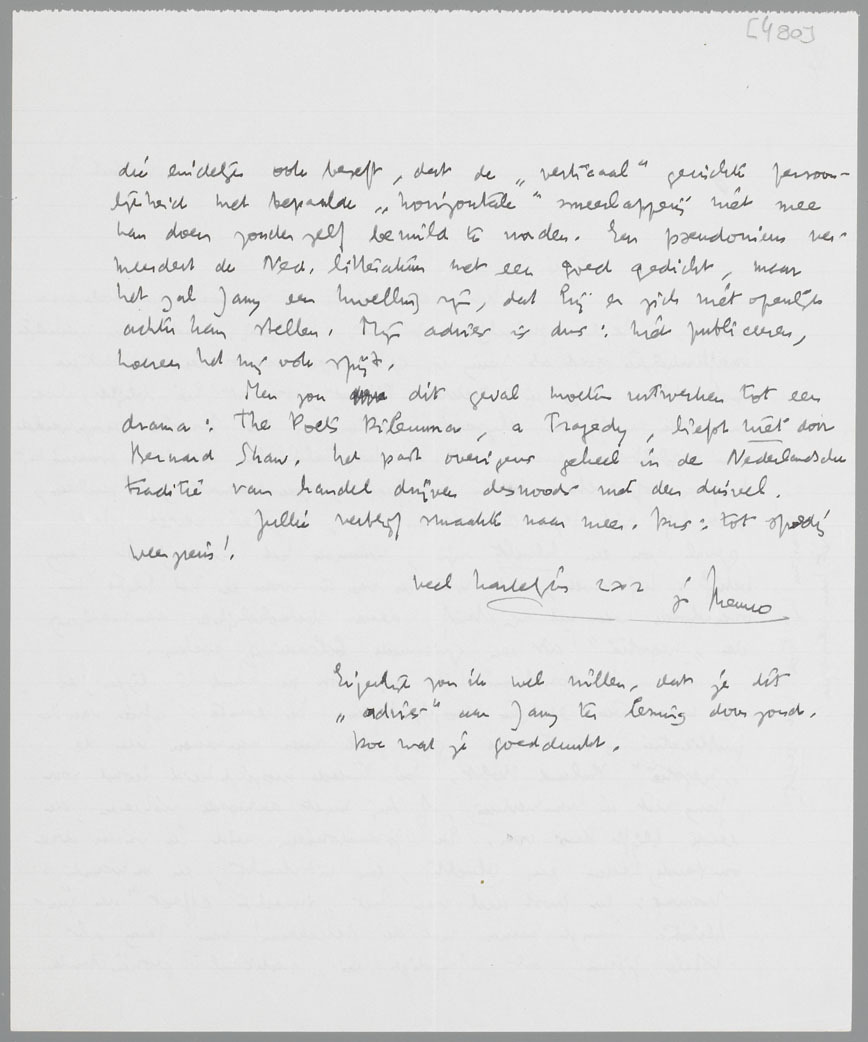 [480]
die eindelijk ook beseft, dat de „verticaal" gerichte persoon-
lijkheid met bepaalde „horizontale" smeerlapperij niet mee
kan doen zonder zelf bemild te worden. Een pseudoniem ver-
meerdert de Ned. litteratuur met een goed gedicht, maar
het zal Jany een kwelling zijn, dat hij er zich niet openlijk
achter kan stellen. Mijn advies is dus: niet publiceeren,
hoezeer het mij ook spijt.
Men zou dit geval moeten uitwerken tot een
drama: The Poets Dilemma, a Tragedy, liefst niet door
Bernard Shaw. Het past overigens geheel in de Nederlandsche
traditie van handel drijven desnoods met den duivel.
Jullie verblijf smaakte naar meer. Dus: tot spoedig
weerziens!
veel hartelijks 2x2 je Menno
Eigenlijk zou ik wel willen, dat je dit
„advies" aan Jany ter lezing doorzond.
Doe wat je goeddunkt.